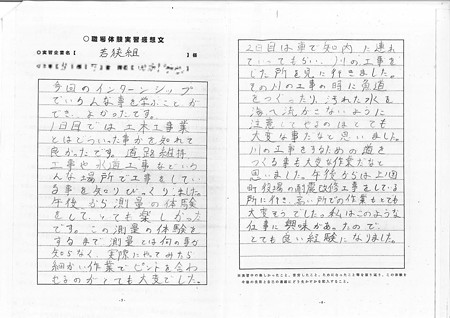 ○職場体験実習感想文
○実習企業名【 若狭組 】様
今回のインターンシップ
でいろんな事を学ぶことが
でき、よかったです。
1日目では土木工事業
とはどういった事かを知れて
良かったです。道路維持
工事や水道工事などいろ
んな場所で工事をしてい
る事を知りびっくりしました。
午後から測量の体験
をして、とても楽しかった
です。この測量の体験を
するまで測量とは何の事か
知らなく、実際にやってみたら
細かい作業でピントを合わ
せるのがとても大変でした。
2日目は車で町内に連れ
ていってもらい、川の工事を
した所を見に行きました。
その川の工事の時に角道
をつくったり、汚れた水を
海へ流がさないように
注意してやるのはとても
大変な事だなと思いました。
川の工事をするための道を
つくる事も大変な作業だなと
思いました。午後からは上ノ国
町役場の耐震改修工事をしている
所に行き、高い所での作業もとても
大変そうでした。私はこのような
仕事に興味があったので、
とても良い経験になりました。